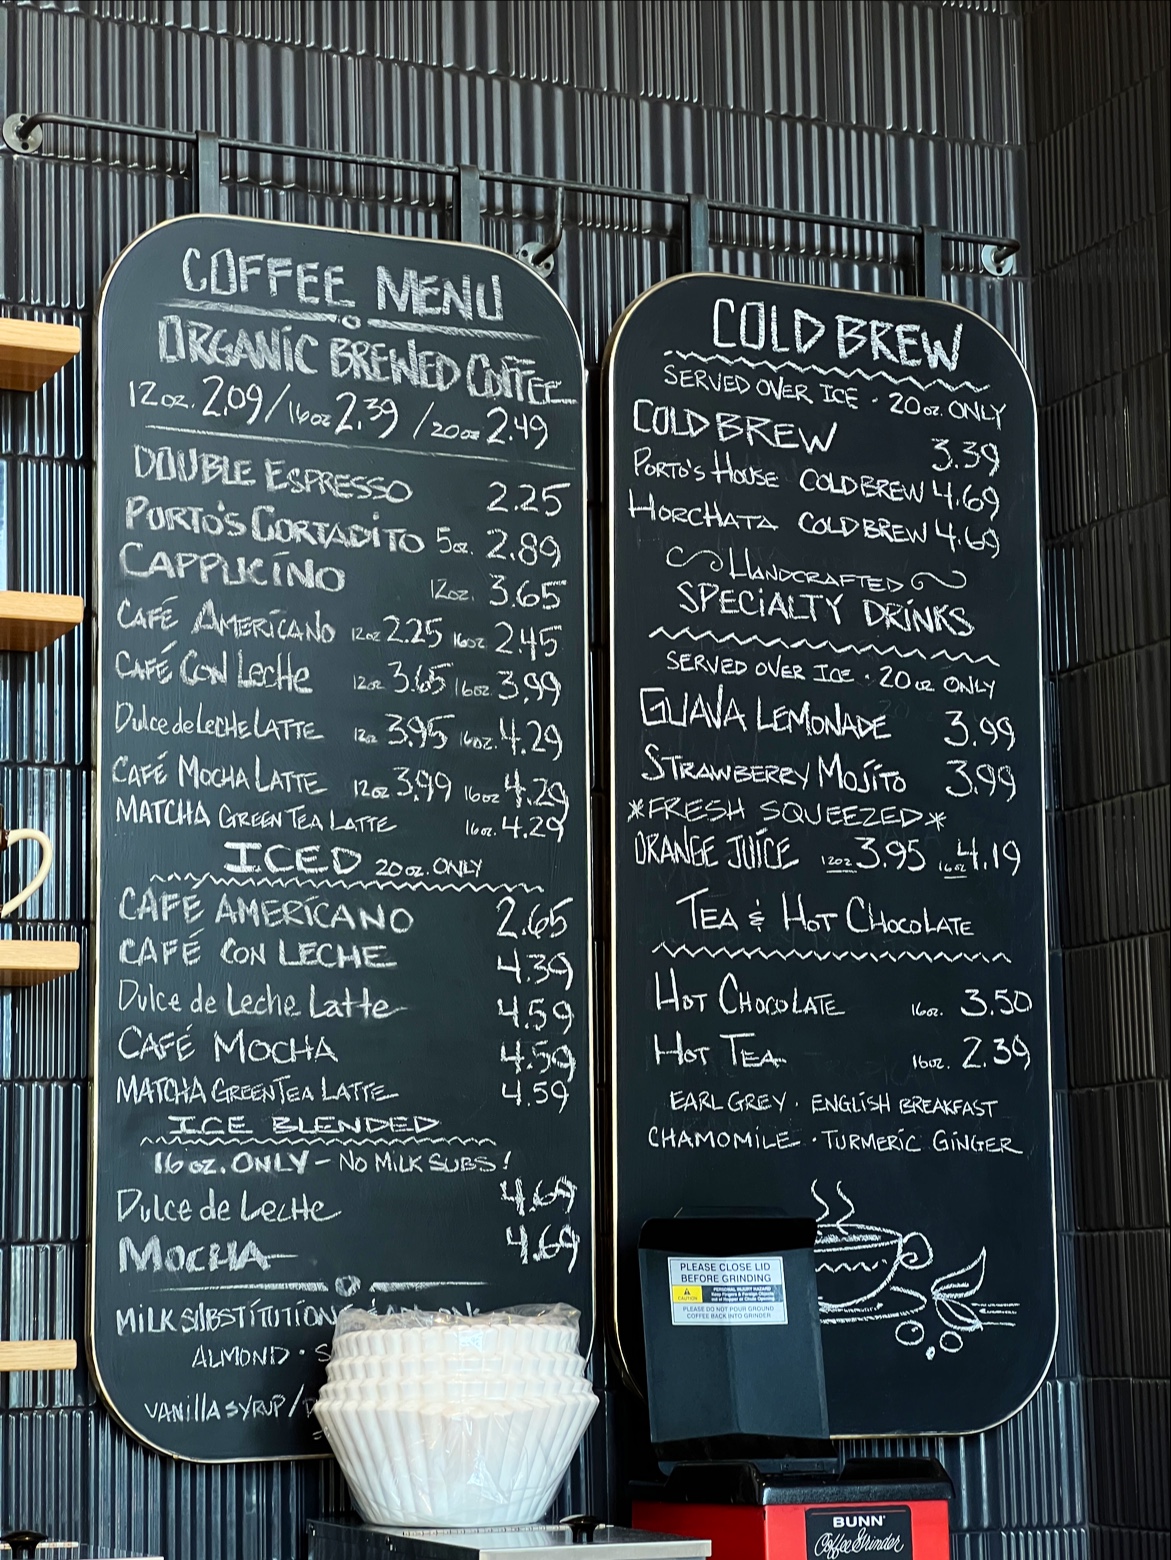 COFFEE MENU
ORGANIC BREWED COFFEE
12oz. 2.09/16oz 2.39/20oz 2.49
DOUBLE ESPRESSO 2.25
PORTO'S CORTADITO 5oz. 2.89
CAPPUCINO 12oz. 3.65
CAFÉ AMERICANO 12oz 2.25 16oz 2.45
CAFÉ CON LECHE 12oz 3.65 16oz. 3.99
Dulce de LECHE LATTE 12oz 3.95 16oz. 4.29
CAFÉ MOCHA LATTE 12oz 3.99 16oz 4.29
MATCHA GREEN TEA LATTE 16oz. 4.29
ICED 20oz. ONLY
CAFÉ AMERICANO 2.65
CAFÉ CON LECHE 4.39
Dulce de Leche Latte 4.59
CAFÉ MOCHA 4.59
MATCHA GREEN TEA LATTE 4.59
ICE BLENDED
16oz. ONLY - NO MILK SUBS!
Dulce de LecHe 4.69
MOCHA 4.69
MILK SUBSTITUTION
ALMOND ·
VANILLA SYRUP/
COLD BREW
SERVED OVER ICE · 20oz. ONLY
COLD BREW 3.39
PORTO'S HOUSE COLD BREW 4.69
HORCHATA COLD BREW 4.69
HANDCRAFTED
SPECIALTY DRINKS
SERVED OVER ICE · 20oz ONLY
GUAVA LEMONADE 3.99
STRAWBERRY MOJITO 3.99
*FRESH SQUEEZED*
ORANGE JUICE 12oz 3.95 16oz 4.19
TEA & HOT CHOCOLATE
HOT CHOCOLATE 16oz. 3.50
HOT TEA 16oz. 2.39
EARL GREY · ENGLISH BREAKFAST
CHAMOMILE · TURMERIC GINGER
PLEASE CLOSE LID
BEFORE GRINDING
CAUTION
PERSONAL INJURY HAZARD
Keep Fingers & Foreign Objects
out of Hopper or Chute Opening
PLEASE DO NOT POUR GROUND
COFFEE BACK INTO GRINDER
BUNN
Coffee Grinder